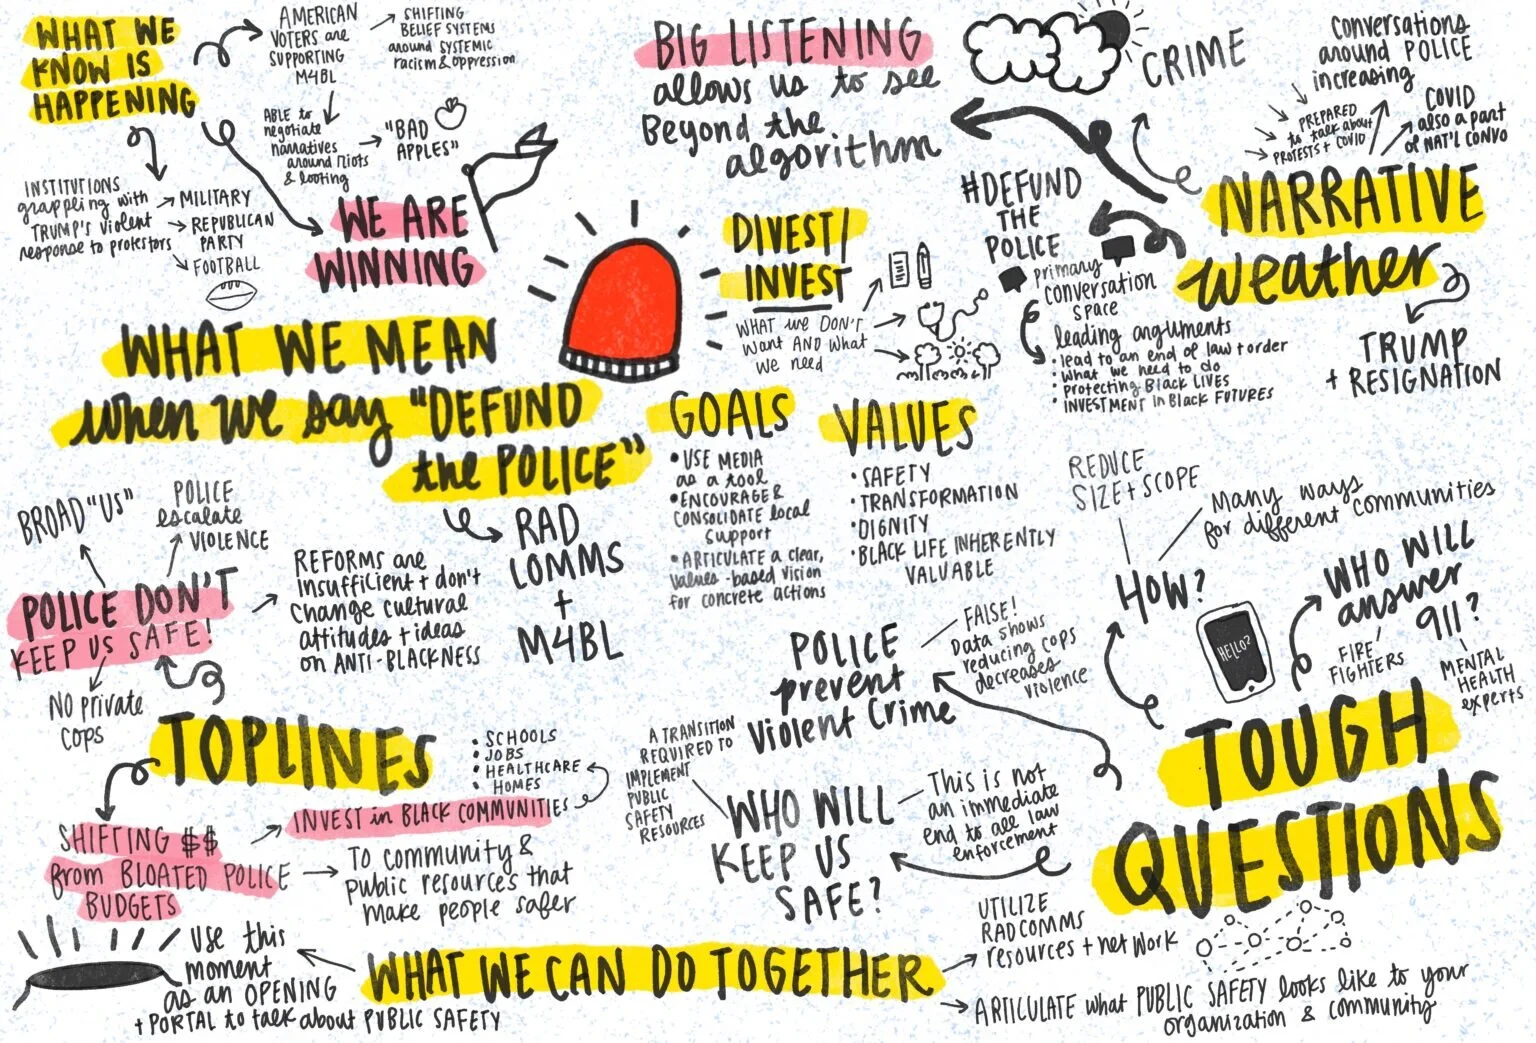 WHAT WE
KNOW IS
HAPPENING
AMERICAN
VOTERS are
SUPPORTING
M4BL
SHIFTING
BELIEF SYSTEMS
around SYSTEMIC
racism & oppression
ABLE to
negotiate
narratives
around riots
& looting
"BAD
APPLES"
INSTITUTIONS
grappling with
TRUMP'S violent
response to protestors
MILITARY
REPUBLICAN
PARTY
FOOTBALL
WE ARE
WINNING
BIG LISTENING
allows us to see
Beyond the
algorithm
CRIME
Conversations
around POLICE
increasing
PREPARED
to talk about
PROTESTS + COVID
COVID
also a part
of NAT'L CONVO
NARRATIVE
weather
TRUMP
+ RESIGNATION
#DEFUND
THE
POLICE
primary
conversation
space
leading arguments
• lead to an end of law + order
• what we need to do
• Protecting Black LIVES
• INVESTMENT in Black FUTURES
DIVEST/
INVEST
WHAT we DON'T
want AND what
we need
WHAT WE MEAN
when we say "DEFUND
the POLICE"
RAD
COMMS
+
M4BL
GOALS
• USE MEDIA
as a tool
• ENCOURAGE &
CONSOLIDATE local
support
• ARTICULATE a clear,
values-based vision
for concrete actions
VALUES
• SAFETY
• TRANSFORMATION
• DIGNITY
• BLACK LIFE INHERENTLY
VALUABLE
BROAD "US"
POLICE
escalate
VIOLENCE
POLICE DON'T
KEEP US SAFE!
NO private
cops
REFORMS are
Insufficient + don't
Change cultural
attitudes + ideas
on ANTI-BLACKNESS
TOPLINES
SHIFTING $$
from BLOATED POLICE
BUDGETS
INVEST in BLACK COMMUNITIES
• SCHOOLS
• JOBS
• HEALTHCARE
• HOMES
To community &
public resources that
make people safer
REDUCE
SIZE + SCOPE
Many ways
for different communities
HOW?
HELLO?
WHO WILL
answer
911?
FIRE
FIGHTERS
MENTAL
HEALTH
experts
TOUGH
QUESTIONS
POLICE
prevent
Violent Crime
FALSE!
Data shows
reducing cops
decreases
violence
WHO WILL
KEEP US
SAFE?
A TRANSITION
REQUIRED to
IMPLEMENT
PUBLIC
SAFETY
RESOURCES
This is not
an immediate
end to all law
enforcement
WHAT WE CAN DO TOGETHER
USE this
moment
as an OPENING
+ PORTAL to talk about PUBLIC SAFETY
UTILIZE
RADCOMMS
resources + network
ARTICULATE what PUBLIC SAFETY looks like to your
organization & community